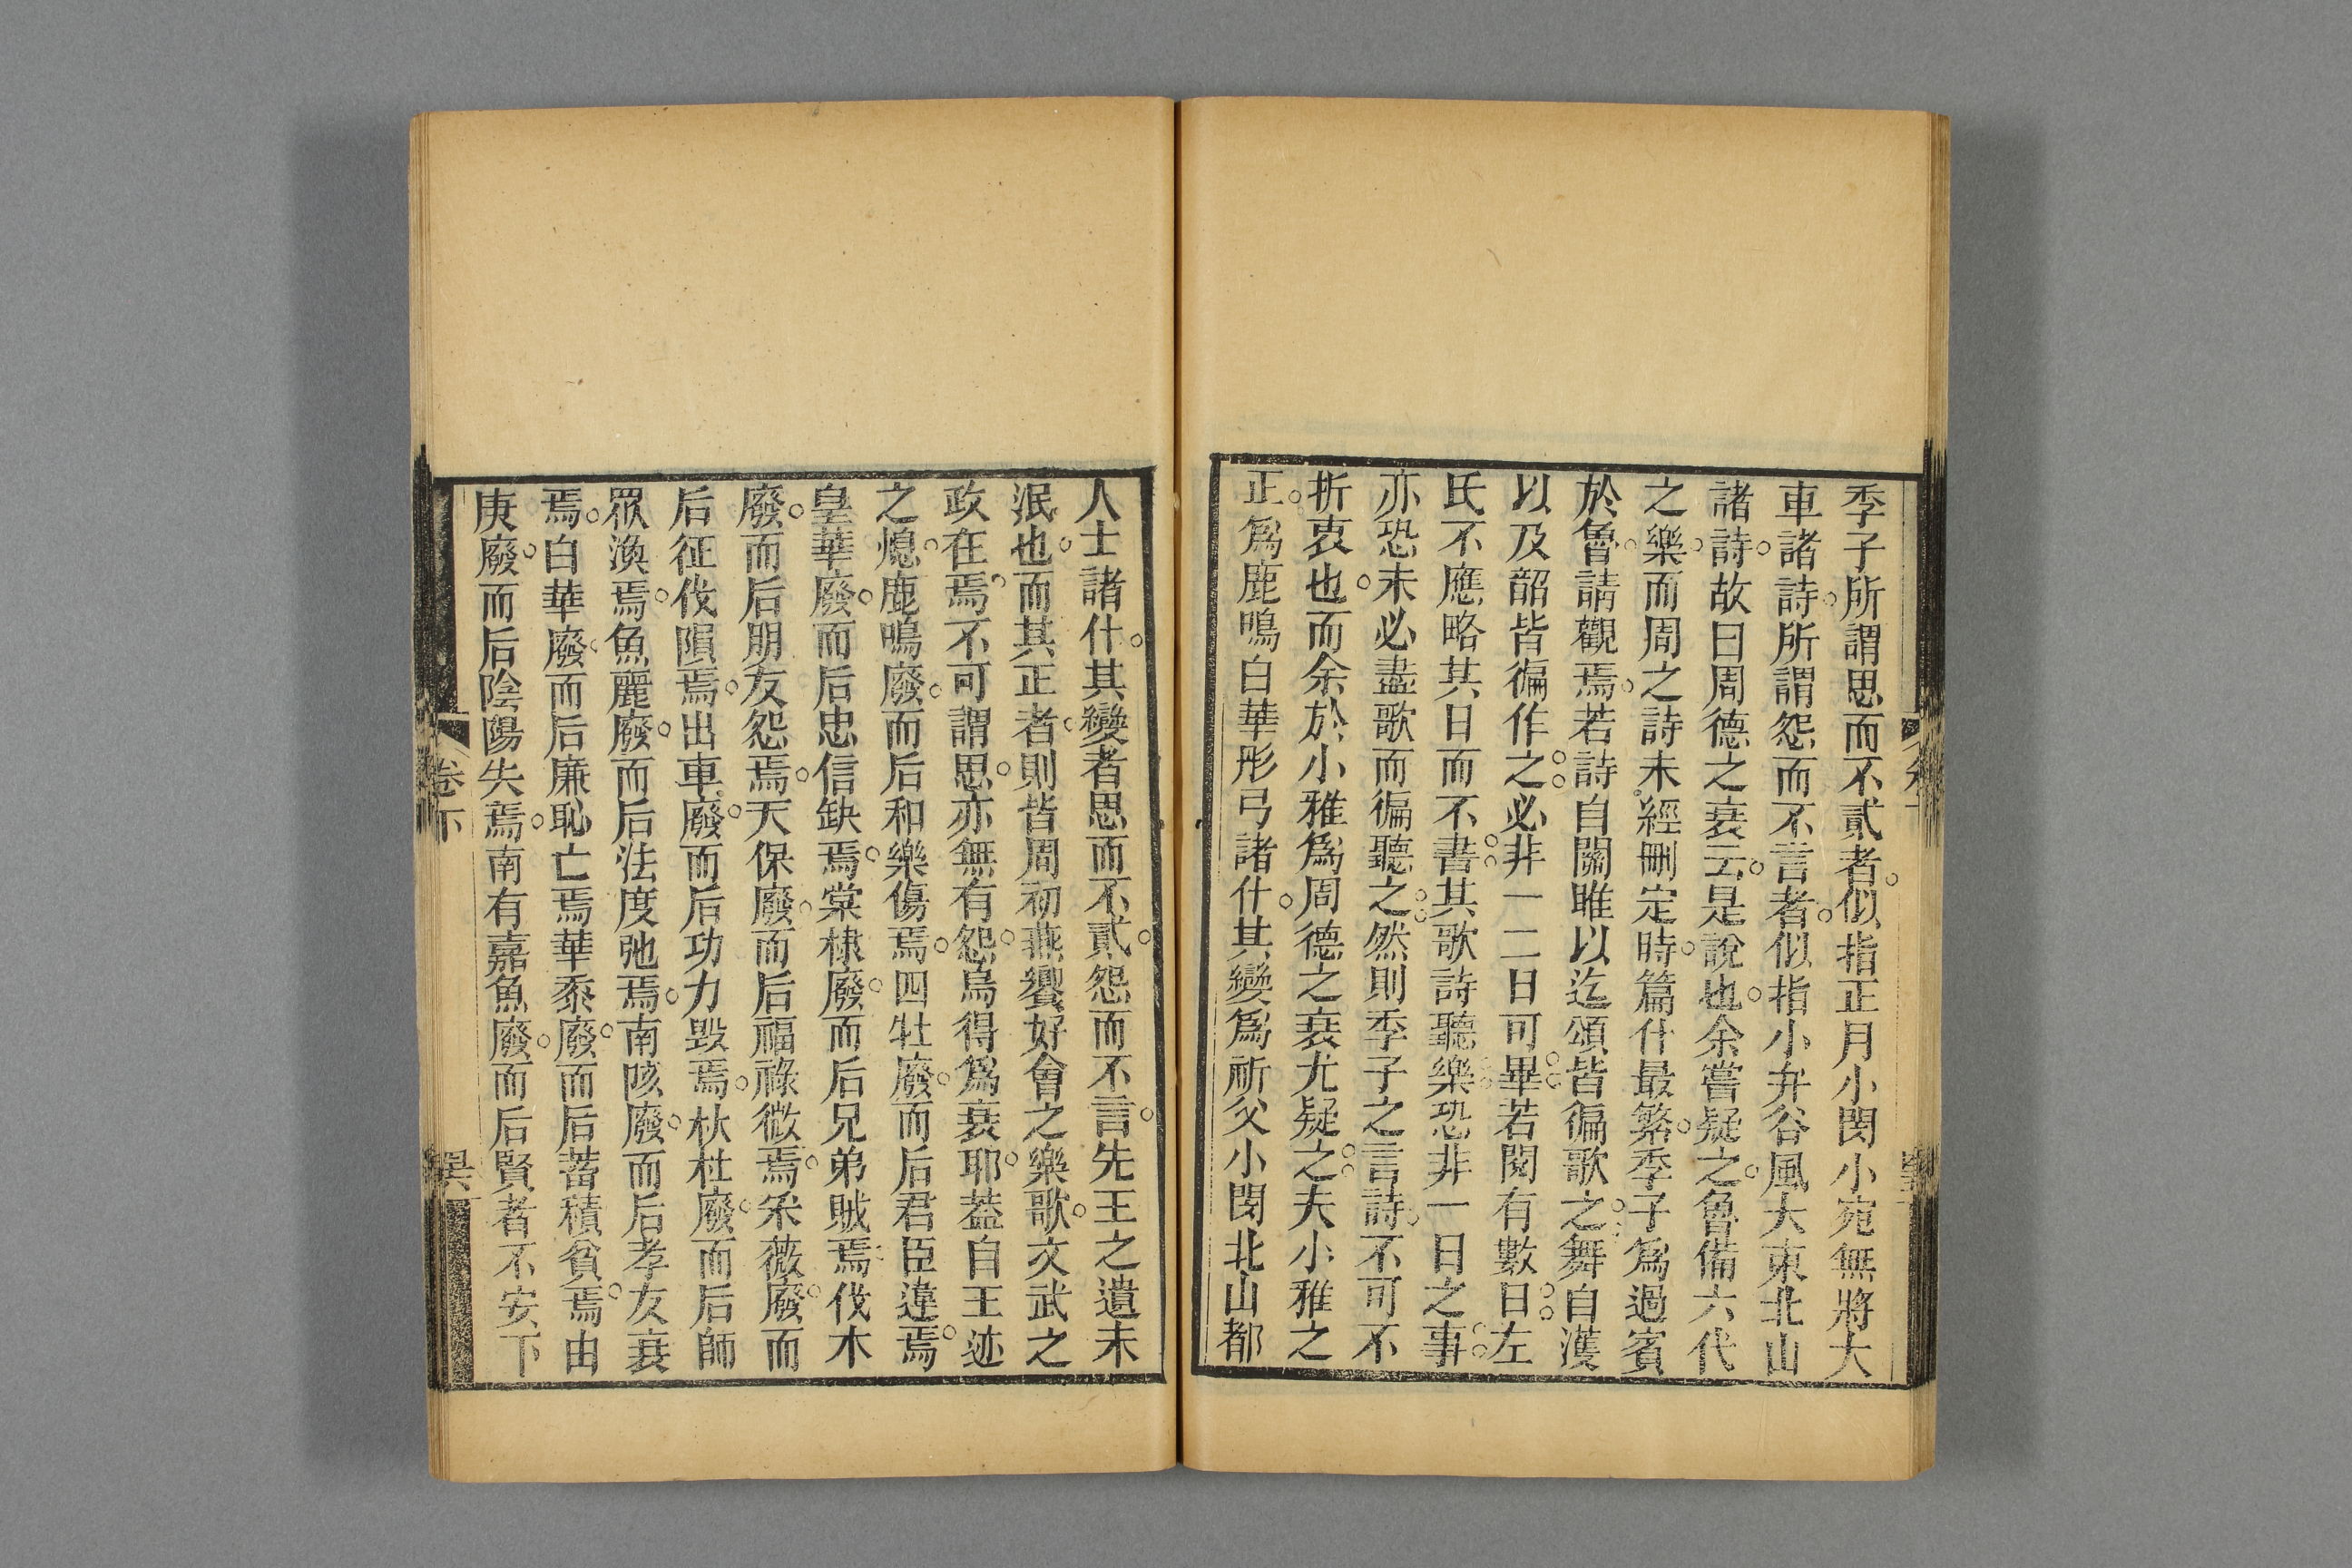 季子所謂思而不貳者似指正月小閔小宛無將大
車諸詩所謂怨而不言者似指小弁谷風大東北山
諸詩故曰周德之衰云是說也余嘗疑之魯備六代
之樂而周之詩未經刪定時篇什最繁季子爲過賓
於魯請觀焉若詩自關雎以迄頌皆徧歌之舞自濩
以及韶皆徧作之必非一二日可畢若閱有數日左
氏不應略其日而不書其歌詩聽樂恐非一日之事
亦恐未必盡歌而徧聽之然則季子之言詩不可不
折衷也而余於小雅爲周德之衰尤疑之夫小雅之
正爲鹿鳴白華彤弓諸什其變爲祈父小閔北山都
人士諸什其變者思而不貳怨而不言先王之遺未
泯也而其正者則皆周初燕饗好會之樂歌文武之
政在焉不可謂思亦無有怨烏得爲衰耶葢自王迹
之熄鹿鳴廢而后和樂傷焉四牡廢而后君臣違焉
皇華廢而后忠信缺焉棠棣廢而后兄弟賊焉伐木
廢而后朋友怨焉天保廢而后福祿微焉采薇廢而
后征伐隕焉出車廢而后功力毀焉杕杜廢而后師
眾渙焉魚麗廢而后法度弛焉南陔廢而后孝友衰
焉白華廢而后廉恥亡焉華黍廢而后蓄積貧焉由
庚廢而后陰陽失焉南有嘉魚廢而后賢者不安下
卷下